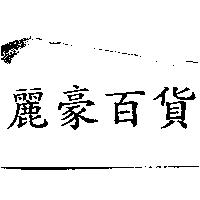 麗豪百貨